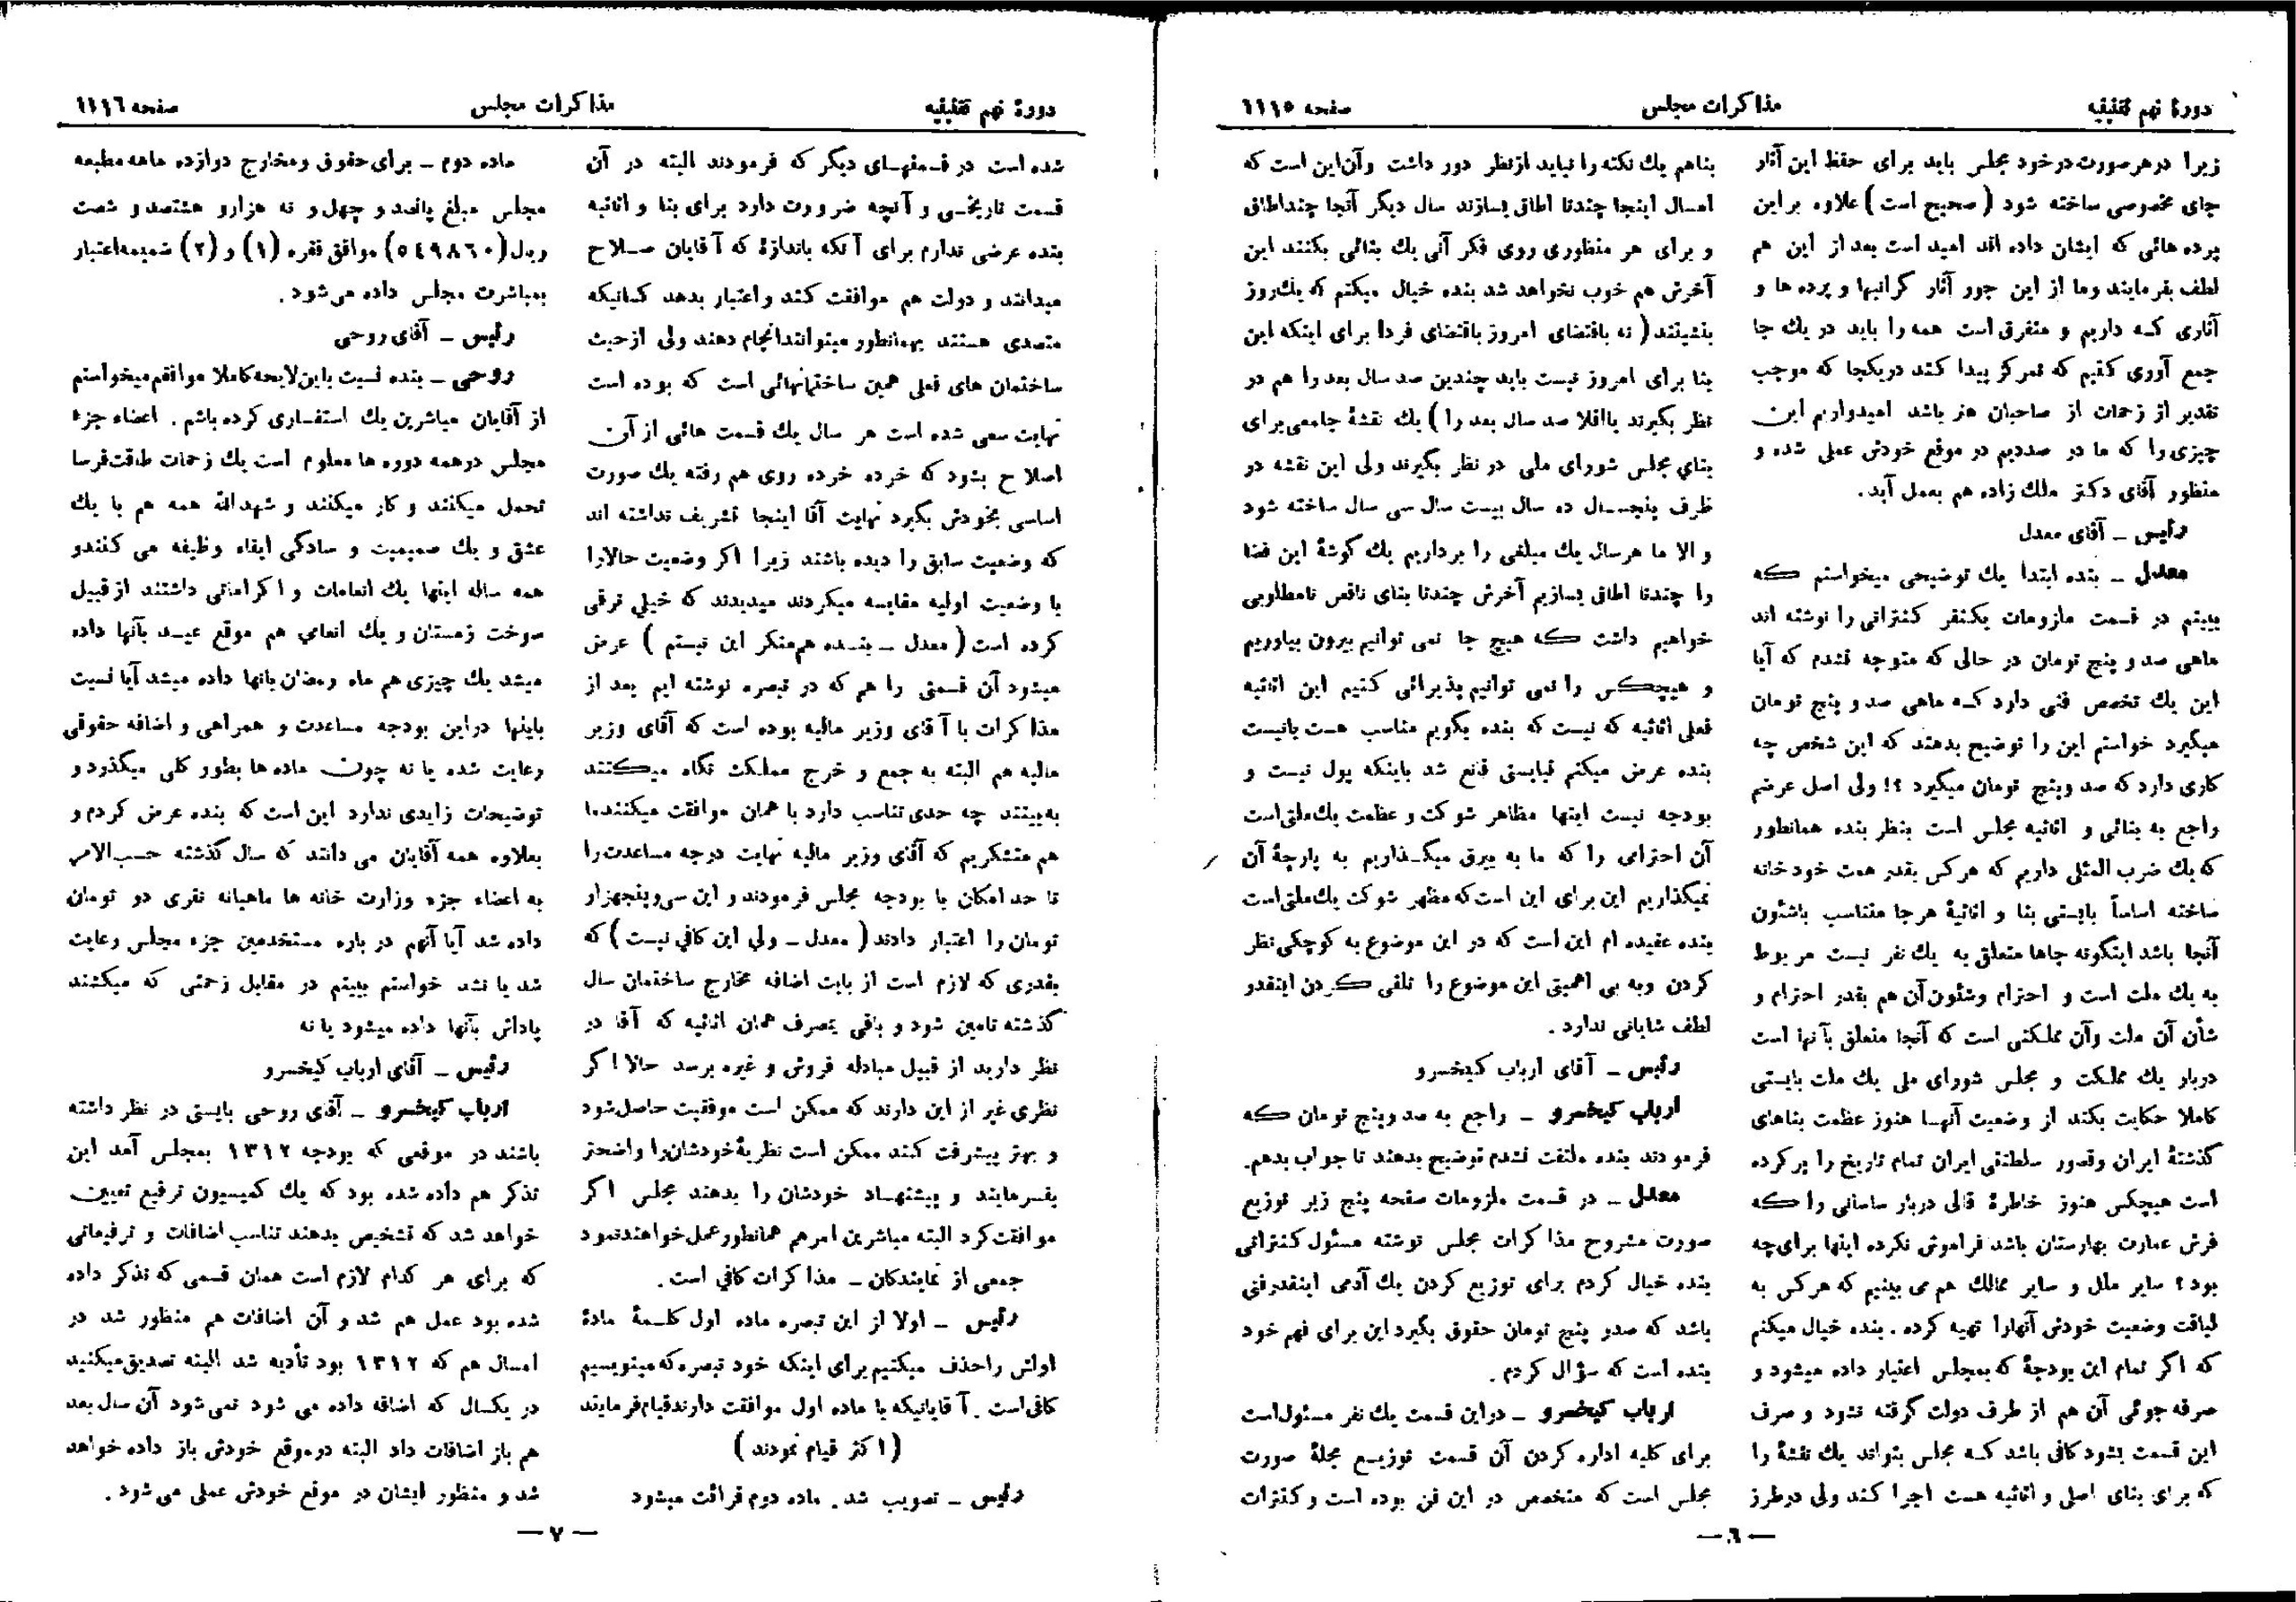 دورهٔ نهم تقنینیه
مذاکرات مجلس
صفحه ۱۱۱۵
زیرا در هر صورت در خود مجلس باید برای حفظ این آثار
جای مخصوصی ساخته شود (صحیح است) علاوه بر این
پرده هائی که ایشان داده اند امید است بعد از این هم
لطف بفرمایند وما از این جور آثار گرانبها و پرده ها و
آثاری که داریم و متفرق است همه را باید در یك جا
جمع آوری کنیم که تمرکز پیدا کند در یکجا که موجب
تقدیر از زحمات از صاحبان هنر باشد امیدواریم این
چیزی را که ما در صددیم در موقع خودش عملی شده و
منظور آقای دکتر ملك زاده هم بعمل آید.
رئیس ـ آقای معدل
معدل ـ بنده ابتدا یك توضیحی میخواستم که
ببینم در قسمت ملزومات یکنفر کنتراتی را نوشته اند
ماهی صد و پنج تومان در حالی که متوجه نشدم که آیا
این یك تخصص فنی دارد که ماهی صد و پنج تومان
میگیرد خواستم این را توضیح بدهند که این شخص چه
کاری دارد که صد وپنج تومان میگیرد ؟! ولی اصل عرضم
راجع به بنائی و اثاثیه مجلس است بنظر بنده همانطور
که یك ضرب المثلی داریم که هر کس بقدر همت خود خانه
ساخته اساساً بایستی بنا و اثاثیهٔ هرجا متناسب باشئون
آنجا باشد اینگونه جاها متعلق به یك نفر نیست مربوط
به یك ملت است و احترام وشئون آن هم بقدر احترام و
شأن آن ملت وآن مملکتی است که آنجا متعلق بآنها است
دربار یك مملکت و مجلس شورای ملی یك ملت بایستی
کاملا حکایت بکند از وضعیت آنهـا هنوز عظمت بناهای
گذشتهٔ ایران وقصور سلطنتی ایران تمام تاریخ را پر کرده
است هیچکس هنوز خاطرهٔ قالی دربار ساسانی را که
فرش عمارت بهارستان باشد فراموش نکرده اینها برای چه
بود ؟ سایر ملل و سایر ممالك هم می بینیم که هر کس به
لیاقت وضعیت خودش آنهارا تهیه کرده . بنده خیال میکنم
که اگر تمام این بودجهٔ که بمجلس اعتبار داده میشود و
صرفه جوئی آن هم از طرف دولت گرفته نشود و صرف
این قسمت بشود کافی باشد که مجلس بتواند یك نقشهٔ را
که برای بنای اصلی و اثاثیه هست اجرا کند ولی در طرز
بناهم یك نکته را نباید از نظر دور داشت وآن این است که
امسال اینجا چندتا اطاق بسازند سال دیگر آنجا چند اطاق
و برای هر منظوری روی فکر آنی یك بنائی بکنند این
آخرش هم خوب نخواهد شد بنده خیال میکنم که یك روز
بنشینند ( نه باقتضای امروز باقتضای فردا برای اینکه این
بنا برای امروز نیست باید چندین صد سال بعد را هم در
نظر بگیرند یااقلا صد سال بعد را ) یك نقشهٔ جامعی برای
بنای مجلس شورای ملی در نظر بگیرند ولی این نقشه در
ظرف پنجسال ده سال بیست سال سی سال ساخته شود
و الا ما هرسال یك مبلغی را برداریم یك گوشهٔ این فضا
را چندتا اطاق بسازیم آخرش چندتا بنای ناقص نامطلوبی
خواهیم داشت که هیچ جا نمی توانیم بیرون بیاوریم
و هیچکس را نمی توانیم پذیرائی کنیم این اثاثیه
فعلی اثاثیه که نیست که بنده بگویم مناسب هست یانیست
بنده عرض میکنم نبایستی قانع شد باینکه پول نیست و
بودجه نیست اینها مظاهر شوکت و عظمت یك ملتی است
آن احترامی را که ما به بیرق میگذاریم به پارچهٔ آن
نمیگذاریم این برای این است که مظهر شوکت یك ملتی است
بنده عقیده ام این است که در این موضوع به کوچکی نظر
کردن وبه بی اهمیتی این موضوع را تلقی کردن اینقدر
لطف شایانی ندارد .
رئیس ـ آقای ارباب کیخسرو
ارباب کیخسرو ـ راجع به صد وپنج تومان که
فرمودند بنده ملتفت نشدم توضیح بدهند تا جواب بدهم.
معدل ـ در قسمت ملزومات صفحه پنج زیر توزیع
صورت مشروح مذاکرات مجلس نوشته مسئول کنتراتی
بنده خیال کردم برای توزیع کردن یك آدمی اینقدر فنی
باشد که صدو پنج تومان حقوق بگیرد این برای فهم خود
بنده است که سؤال کردم .
ارباب کیخسرو ـ در این قسمت یك نفر مسئول است
برای کلیه اداره کردن آن قسمت توزیع مجلهٔ صورت
مجلس است که متخصص در این فن بوده است و کنترات
— ٦ —
دورهٔ نهم تقنینیه
مذاکرات مجلس
صفحه ۱۱۱٦
شده است در قسمتهـای دیگر که فرمودند البته در آن
قسمت تاریخـی و آنچه ضرورت دارد برای بنا و اثاثیه
بنده عرضی ندارم برای آنکه باندازهٔ که آقایان صـلاح
میدانند و دولت هم موافقت کند و اعتبار بدهد کسانیکه
متصدی هستند بهمانطور میتوانند انجام دهند ولی از حیث
ساختمان های فعلی همین ساختمانهائی است که بوده است
نهایت سعی شده است هر سال یك قسمت هائی از آن
اصلاح بشود که خرده خرده روی هم رفته یك صورت
اساسی بخودش بگیرد نهایت آقا اینجا تشریف نداشته اند
که وضعیت سابق را دیده باشند زیرا اگر وضعیت حالارا
با وضعیت اولیه مقایسه میکردند میدیدند که خیلی ترقی
کرده است ( معدل ـ بنـده هم منکر این نیستم ) عرض
میشود آن قسمتی را هم که در تبصره نوشته ایم بعد از
مذاکرات با آقای وزیر مالیه بوده است که آقای وزیر
مالیه هم البته به جمع و خرج مملکت نگاه میکنند
به بینند چه حدی تناسب دارد با همان موافقت میکنند ما
هم متشکریم که آقای وزیر مالیه نهایت درجه مساعدت را
تا حد امکان با بودجه مجلس فرمودند و این سی و پنجهزار
تومان را اعتبار دادند ( معدل ـ ولی این کافی نیست ) که
بقدری که لازم است از بابت اضافه مخارج ساختمان سال
گذشته تامین شود و باقی بمصرف همان اثاثیه که آقا در
نظر دارید از قبیل مبادله فروش و غیره برسد حالا اگر
نظری غیر از این دارند که ممکن است موفقیت حاصل شود
و بهتر پیشرفت کند ممکن است نظریهٔ خودشان را واضحتر
بفـرمایند و پیشنهـاد خودشان را بدهند مجلس اگر
موافقت کرد البته مباشرین امر هم همانطور عمل خواهند نمود
جمعی از نمایندگان ـ مذاکرات کافی است .
رئیس ـ اولا از این تبصره ماده اول کلمهٔ مادهٔ
اولش را حذف میکنیم برای اینکه خود تبصره که مینویسیم
کافی است . آقایانیکه با ماده اول موافقت دارند قیام فرمایند
( اکثر قیام نمودند )
رئیس ـ تصویب شد . ماده دوم قرائت میشود
ماده دوم ـ برای حقوق و مخارج دوازده ماهه مطبعه
مجلس مبلغ پانصد و چهل و نه هزار و هشتصد و شصت
ریال (۵٤۹۸٦۰) موافق فقره (۱) و (۲) ضمیمه اعتبار
بمباشرت مجلس داده می شود .
رئیس ـ آقای روحی
روحی ـ بنده نسبت باین لایحه کاملا موافقم میخواستم
از آقایان مباشرین یك استفساری کرده باشم . اعضاء جزء
مجلس در همه دوره ها معلوم است یك زحمات طاقت فرسا
تحمل میکنند و کار میکنند و شهدالله همه هم با یك
عشق و یك صمیمیت و سادگی ایفاء وظیفه می کنند و
همه ساله اینها یك انعامات و اکراماتی داشتند از قبیل
سوخت زمستان و یك انعامی هم موقع عیـد بآنها داده
میشد یك چیزی هم ماه رمضان بانها داده میشد آیا نسبت
باینها در این بودجه مساعدت و همراهی و اضافه حقوقی
رعایت شده یا نه چون ماده ها بطور کلی میگذرد و
توضیحات زایدی ندارد این است که بنده عرض کردم و
بعلاوه همه آقایان می دانند که سال گذشته حسب الامر
به اعضاء جزء وزارت خانه ها ماهیانه نفری دو تومان
داده شد آیا آنهم در باره مستخدمین جزء مجلس رعایت
شد یا نشد خواستم ببینم در مقابل زحمتی که میکشند
پاداش بآنها داده میشود یا نه
رئیس ـ آقای ارباب کیخسرو
ارباب کیخسرو ـ آقای روحی بایستی در نظر داشته
باشند در موقعی که بودجه ۱۳۱۲ بمجلس آمد این
تذکر هم داده شده بود که یك کمیسیون ترفیع تعیین
خواهد شد که تشخیص بدهند تناسب اضافات و ترفیعاتی
که برای هر کدام لازم است همان قسمی که تذکر داده
شده بود عمل هم شد و آن اضافات هم منظور شد در
امسال هم که ۱۳۱۲ بود تأدیه شد البته تصدیق میکنید
در یکسال که اضافه داده می شود نمی شود آن سال بعد
هم باز اضافات داد البته در موقع خودش باز داده خواهد
شد و منظور ایشان در موقع خودش عملی می شود .
— ۷ —